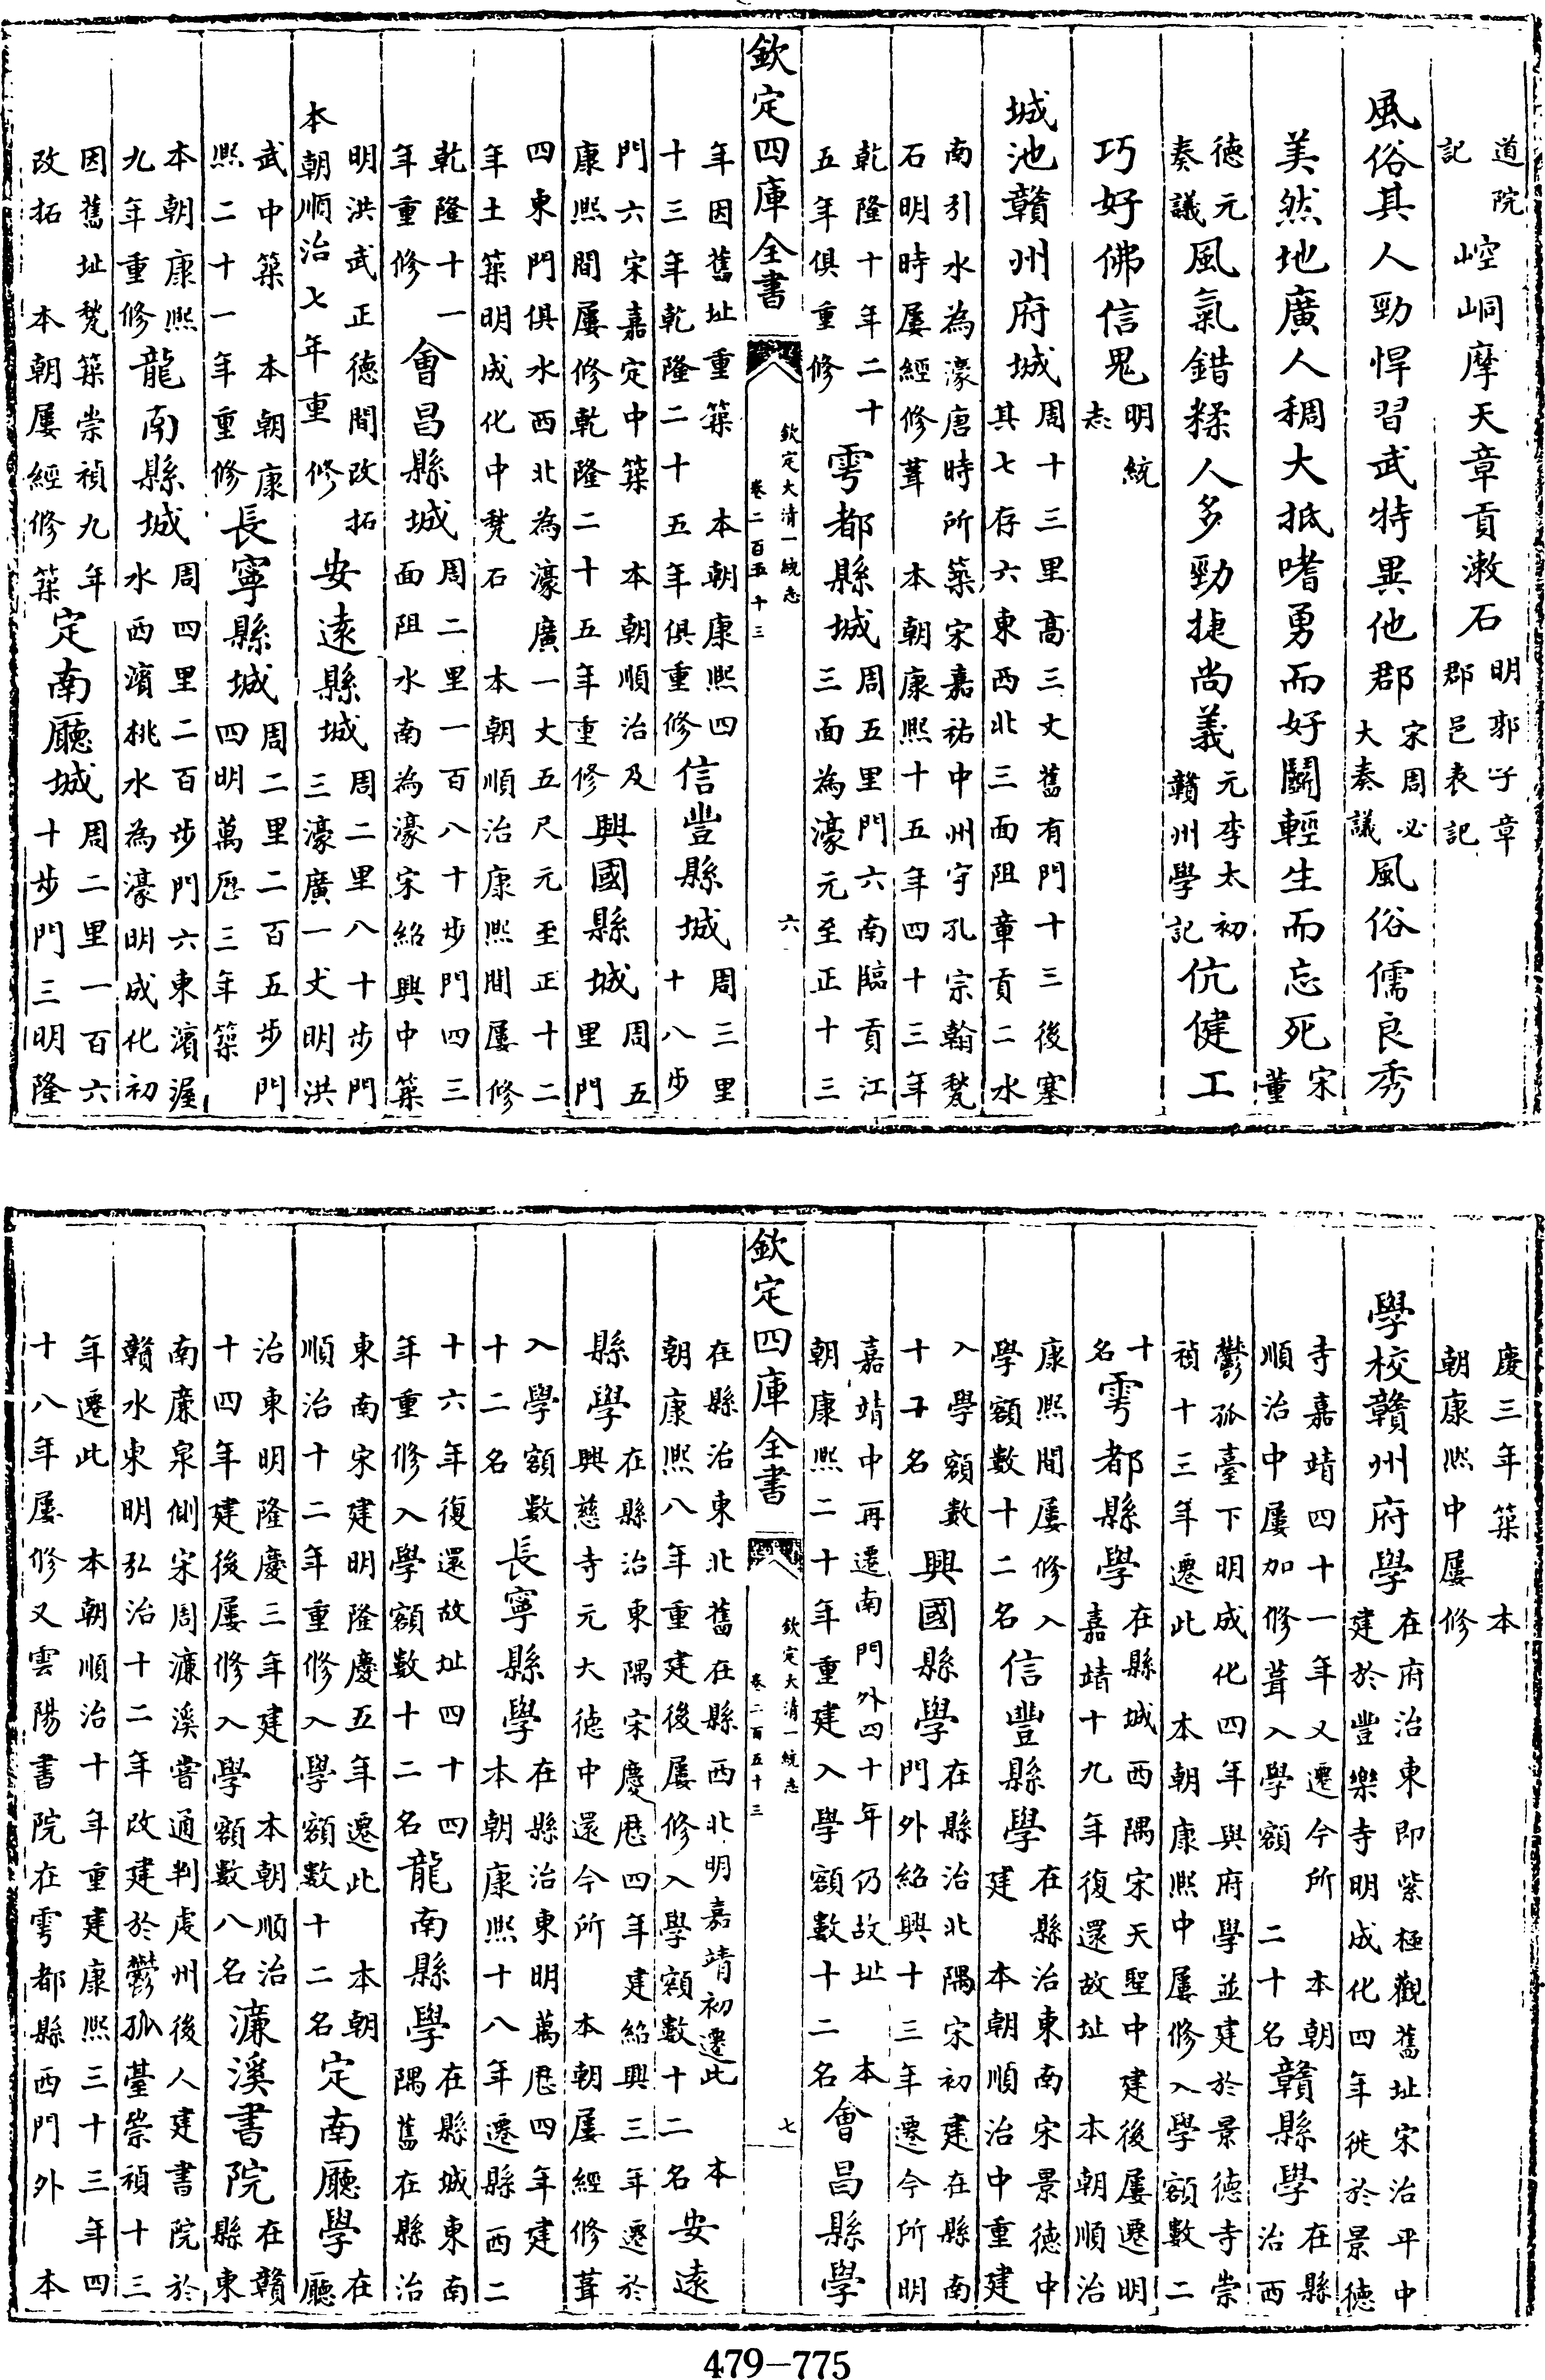 道院記 崆峒摩天章貢漱石 明郭子章郡邑表記
風俗其人勁悍習武特異他郡 宋周必大奏議 風俗儒良秀
美然地廣人稠大抵嗜勇而好鬬輕生而忘死 宋董
德元奏議 風氣錯糅人多勁捷尚義 元李太初贛州學記 伉健工
巧好佛信鬼 明統志
城池贛州府城 周十三里高三丈舊有門十三後塞其七存六東西北三面阻章貢二水
南引水為濠唐時所築宋嘉祐中州守孔宗翰甃石明時屢經修葺 本朝康熙十五年四十三年
乾隆十年二十五年俱重修 雩都縣城 周五里門六南臨貢江三面為濠元至正十三
欽定四庫全書 欽定大清一統志 卷二百五十三 六
年因舊址重築 本朝康熙四十三年乾隆二十五年俱重修 信豐縣城 周三里十八步
門六宋嘉定中築 本朝順治及康熙間屢修乾隆二十五年重修 興國縣城 周五里門
四東門俱水西北為濠廣一丈五尺元至正十二年土築明成化中甃石 本朝順治康熙間屢修
乾隆十一年重修 會昌縣城 周二里一百八十步門四三面阻水南為濠宋紹興中築
明洪武正德間改拓 本朝順治七年重修 安遠縣城 周二里八十步門三濠廣一丈明洪
武中築 本朝康熙二十一年重修 長寧縣城 周二里二百五步門四明萬歷三年築
本朝康熙九年重修 龍南縣城 周四里二百步門六東濱渥水西濱桃水為濠明成化初
因舊址甃築崇禎九年改拓 本朝屢經修築 定南廳城 周二里一百六十步門三明隆
慶三年築 本朝康熙中屢修
學校贛州府學 在府治東即紫極觀舊址宋治平中建於豐樂寺明成化四年徙於景德
寺嘉靖四十一年又遷今所 本朝順治中屢加修葺入學額二十名 贛縣學 在縣治西
鬱孤臺下明成化四年與府學並建於景德寺崇禎十三年遷此 本朝康熙中屢修入學額數二
十名 雩都縣學 在縣城西隅宋天聖中建後屢遷明嘉靖十九年復還故址 本朝順治
康熙間屢修入學額數十二名 信豐縣學 在縣治東南宋景德中建 本朝順治中重建
入學額數十五名 興國縣學 在縣治北隅宋初建在縣南門外紹興十三年遷今所明
嘉靖中再遷南門外四十年仍故址 本朝康熙二十年重建入學額數十二名 會昌縣學
欽定四庫全書 欽定大清一統志 卷二百五十三 七
在縣治東北舊在縣西北明嘉靖初遷此 本朝康熙八年重建後屢修入學額數十二名 安遠
縣學 在縣治東隅宋慶歷四年建紹興三年遷於興慈寺元大德中還今所 本朝屢經修葺
入學額數十二名 長寧縣學 在縣治東明萬歷四年建 本朝康熙十八年遷縣西二
十六年復還故址四十四年重修入學額數十二名 龍南縣學 在縣城東南隅舊在縣治
東南宋建明隆慶五年遷此 本朝順治十二年重修入學額數十二名 定南廳學 在廳
治東明隆慶三年建 本朝順治十四年建後屢修入學額數八名 濂溪書院 在贛縣東
南廉泉側宋周濂溪嘗通判虔州後人建書院於贛水東明弘治十二年改建於鬱孤臺崇禎十三
年遷此 本朝順治十年重建康熙三十三年四十八年屢修又雲陽書院在雩都縣西門外 本
479-775